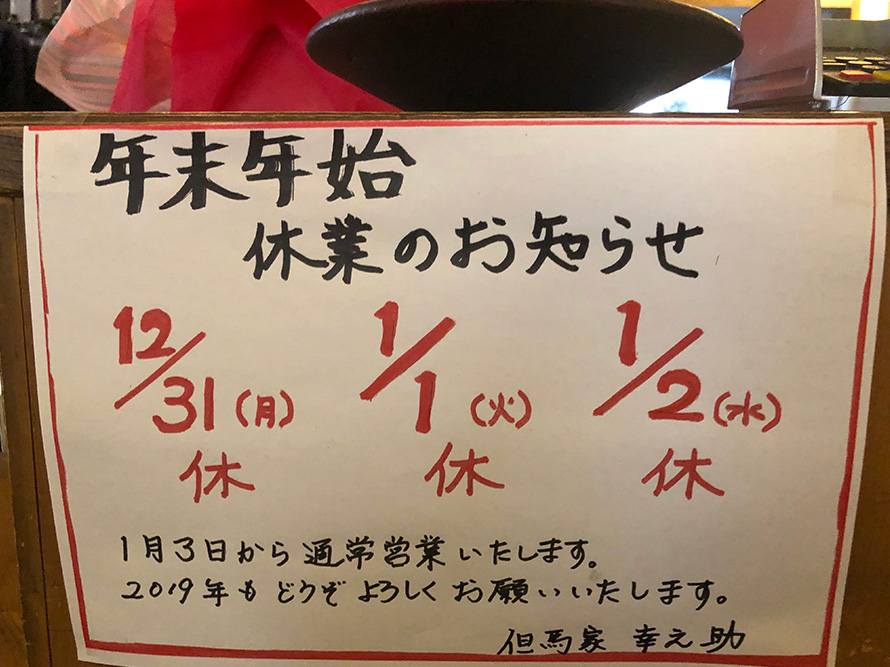 年末年始
休業のお知らせ
12/31(月) 1/1(火) 1/2(水)
休 休 休
1月3日から通常営業いたします。
2019年もどうぞよろしくお願いいたします。
但馬家 幸之助